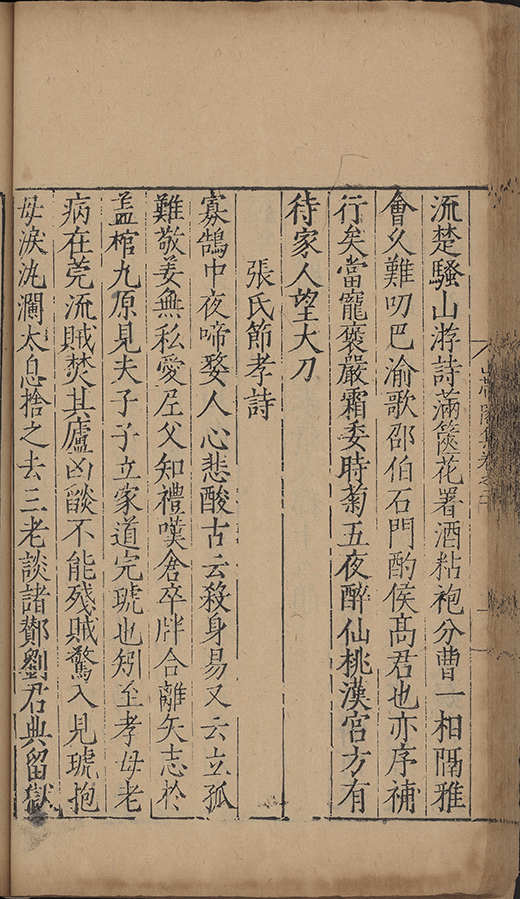 流楚騷山游詩滿篋花署酒粘袍分曹一相隔雅
會久難叨巴渝歌邵伯石門酌侯高君也亦序補
行矣當寵褒嚴霜委時菊五夜醉仙桃漢宮方有
待家人望大刀
張氏節孝詩
寡鵠中夜啼嫠人心悲酸古云殺身易又云立孤
難敬姜無私愛尼父知禮嘆倉卒牉合離矢志於
盖棺九原見夫子子立家道完琥也矧至孝母老
病在莞流賊焚其廬凶𦦨不能殘賊驚入見琥抱
母淚汍瀾太息捨之去三老談諸鄼劉君典留獄
集卷之二